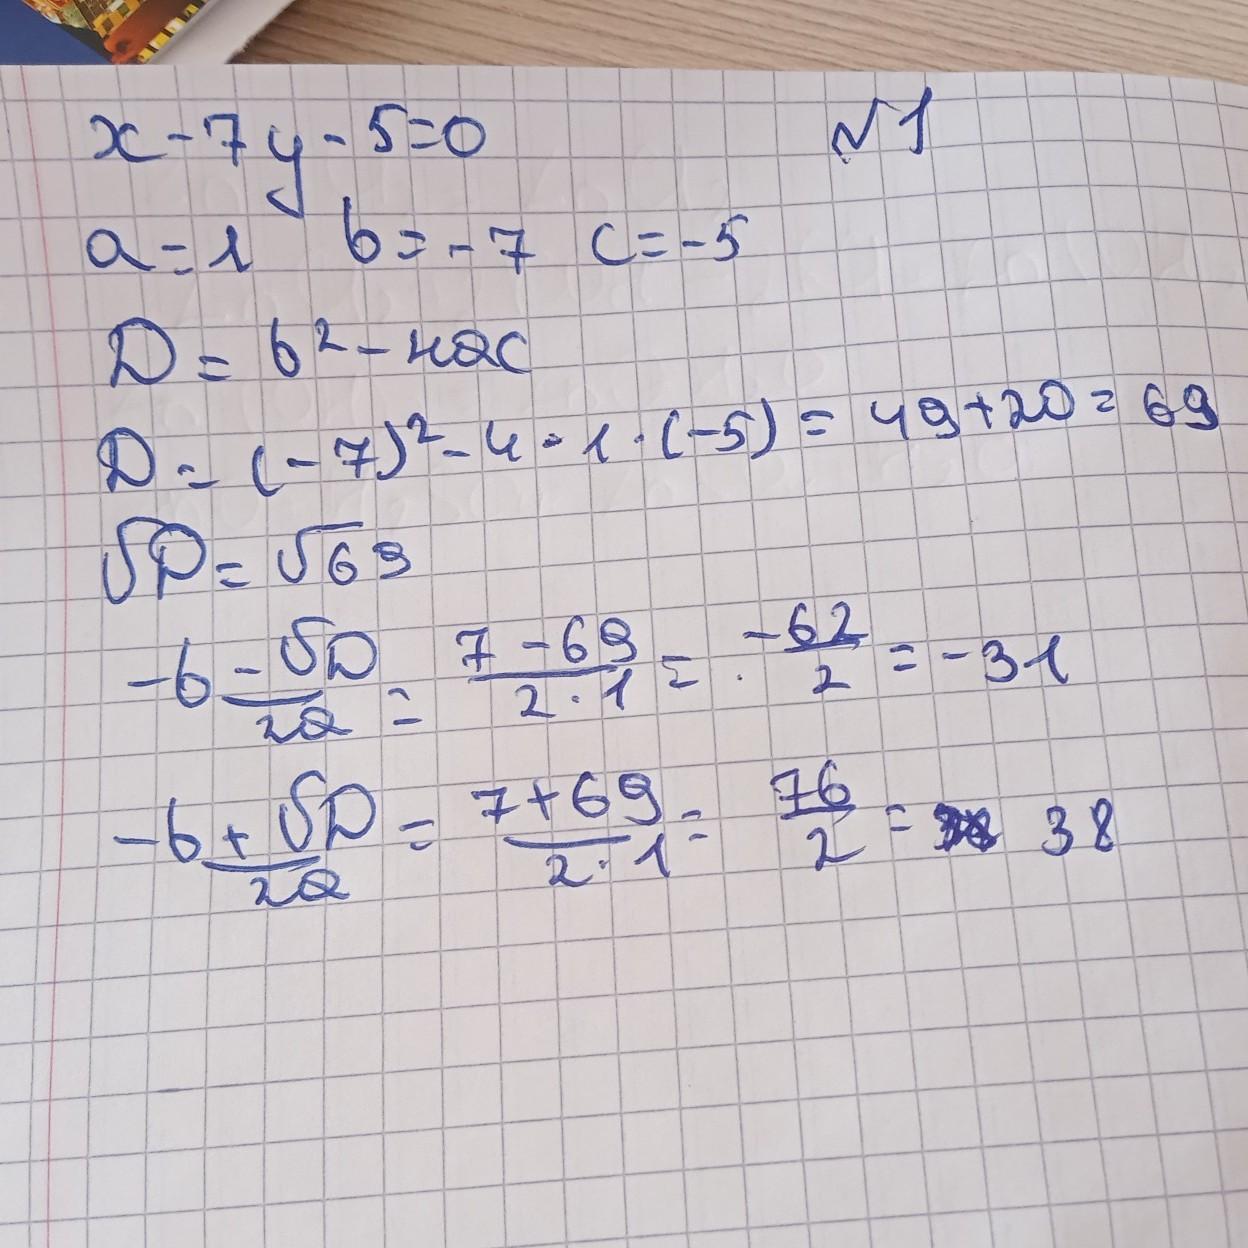 x - 7y - 5 = 0 №1
a = 1 b = -7 c = -5
D = b² - 4ac
D = (-7)² - 4 · 1 · (-5) = 49 + 20 = 69
√D = √69
(-b - √D)/2a = (7 - 69)/(2 · 1) = -62/2 = -31
(-b + √D)/2a = (7 + 69)/(2 · 1) = 76/2 = 38